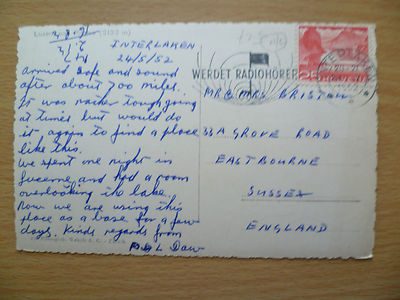 INTERLAKEN
24/5/52
arrived safe and sound
after about 700 miles.
It was rather tough going
at times but would do
it again to find a place
like this.
We spent one night in
Lucerne, and had a room
overlooking the lake.
Now we are using this
place as a base for a few
days. Kinds regards from
Daw
WERDET RADIOHÖRER
MR & MRS BRISTOW
33A GROVE ROAD
EASTBOURNE
SUSSEX
ENGLAND